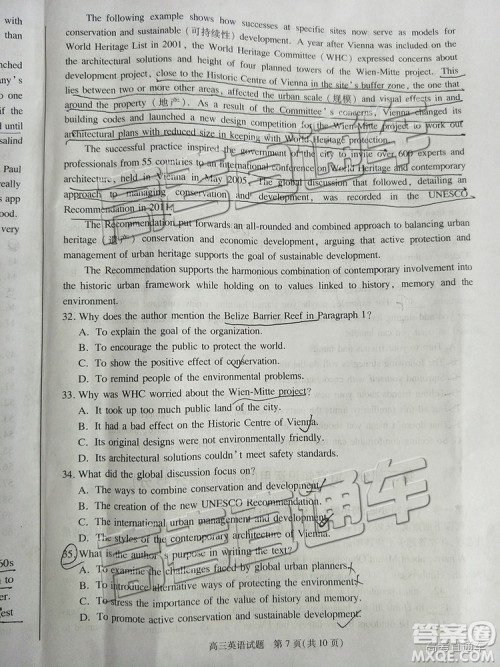 with
than
nched
any's
o one
d until
salind
Paul
really
s app
ood.
very
60s
n to
fest
The following example shows how successes at specific sites now serve as models for
conservation and sustainable (可持续性) development. A year after Vienna was included on the
World Heritage List in 2001, the World Heritage Committee (WHC) expressed concerns about
the architectural solutions and height of four planned towers of the Wien-Mitte Project, an urban
development project, close to the Historic Centre of Vienna in the site's buffer zone, the one that
lies between two or more other areas, affected the urban scale (规模) and visual effects in and
around the property (地产). As a result of the Committee's concerns, Vienna changed its
building codes and launched a new design competition for the Wien-Mitte project to work out
architectural plans with reduced size in keeping with World Heritage protection.
The successful practice inspired the government of the city to invite over 600 experts and
professionals from 55 countries to an international conference on World Heritage and contemporary
architecture, held in Vienna in May 2005. The global discussion that followed, detailing an
approach to managing conservation and development, was recorded in the UNESCO
Recommendation in 2011.
The Recommendation put forwards an all-rounded and combined approach to balancing urban
heritage (遗产) conservation and economic development, arguing that active protection and
management of urban heritage supports the goal of sustainable development.
The Recommendation supports the harmonious combination of contemporary involvement into
the historic urban framework while holding on to values linked to history, memory and the
environment.
32. Why does the author mention the Belize Barrier Reef in Paragraph 1?
A. To explain the goal of the organization.
B. To encourage the public to protect the world.
C. To show the positive effect of conservation.
D. To remind people of the environmental problems.
33. Why was WHC worried about the Wien-Mitte project?
A. It took up too much public land of the city.
B. It had a bad effect on the Historic Centre of Vienna.
C. Its original designs were not environmentally friendly.
D. Its architectural solutions couldn't meet safety standards.
34. What did the global discussion focus on?
A. The ways to combine conservation and development.
B. The creation of the new UNESCO Recommendation.
C. The international urban management and development.
D. The styles of the contemporary architecture of Vienna.
35. What is the author's purpose in writing the text?
A. To examine the challenges faced by global urban planners.
B. To introduce alternative ways of protecting the environment.
C. To stress the importance of the value of history and memory.
D. To promote conservation and sustainable development.
高三英语试题 第 7 页(共 10 页)
高考直通车
高考直通车
答案圈
MXQE.COM